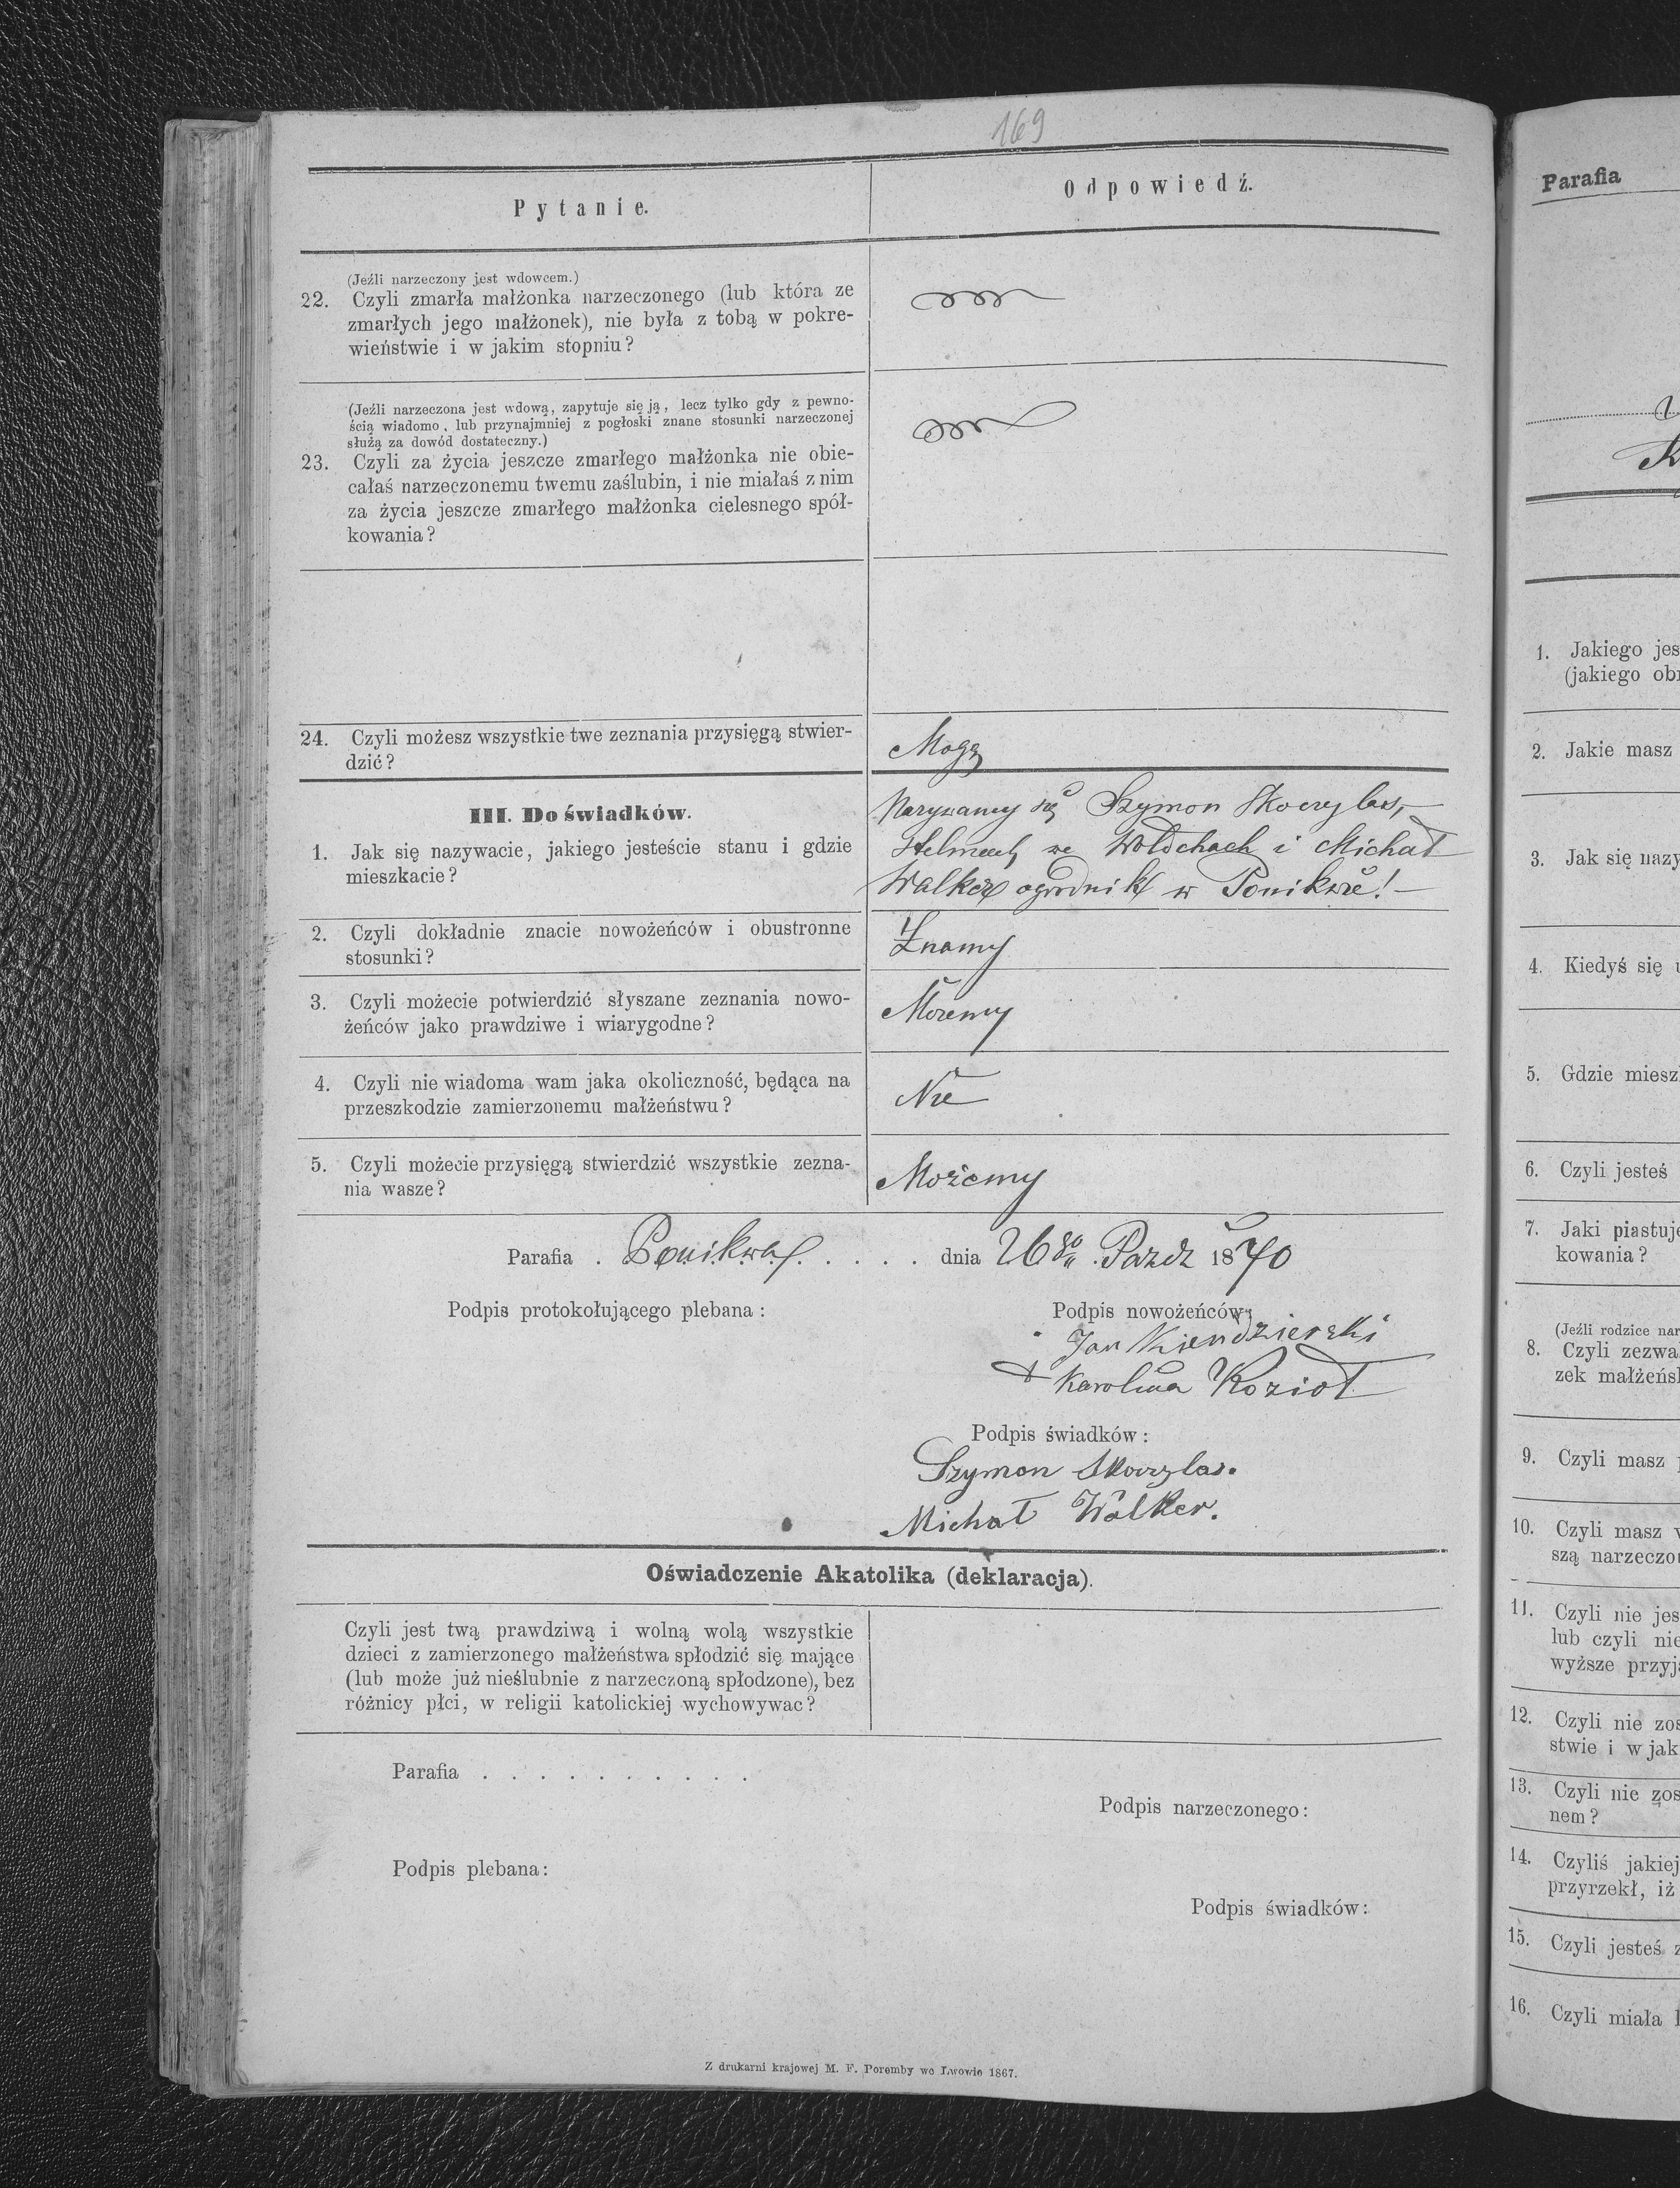 169
Pytanie.
Odpowiedź.
(Jeźli narzeczony jest wdowcem.)
22. Czyli zmarła małżonka narzeczonego (lub która ze
zmarłych jego małżonek), nie była z tobą w pokre-
wieństwie i w jakim stopniu?
(Jeźli narzeczona jest wdową, zapytuje się ją, lecz tylko gdy z pewno-
ścią wiadomo, lub przynajmniej z pogłoski znane stosunki narzeczonej
służą za dowód dostateczny.)
23. Czyli za życia jeszcze zmarłego małżonka nie obie-
całaś narzeczonemu twemu zaślubin, i nie miałaś z nim
za życia jeszcze zmarłego małżonka cielesnego spół-
kowania?
24. Czyli możesz wszystkie twe zeznania przysięgą stwier-
dzić?
Mogę
III. Do świadków.
1. Jak się nazywacie, jakiego jesteście stanu i gdzie
mieszkacie?
Nazywamy się Szymon Skoczylas,
Stelmach we Wołochach i Michał
Walker ogrodnik w Ponikwie! —
2. Czyli dokładnie znacie nowożeńców i obustronne
stosunki?
Znamy
3. Czyli możecie potwierdzić słyszane zeznania nowo-
żeńców jako prawdziwe i wiarygodne?
Możemy
4. Czyli nie wiadoma wam jaka okoliczność, będąca na
przeszkodzie zamierzonemu małżeństwu?
Nie
5. Czyli możecie przysięgą stwierdzić wszystkie zezna-
nia wasze?
Możemy
Parafia . Ponikwa . . . . . dnia 26go Pazdz 1870
Podpis protokołującego plebana:
Podpis nowożeńców:
Jan Kiendzierski
+ Karolina Kozioł
Podpis świadków:
Szymon Skoczylas.
Michał Walker.
Oświadczenie Akatolika (deklaracja).
Czyli jest twą prawdziwą i wolną wolą wszystkie
dzieci z zamierzonego małżeństwa spłodzić się mające
(lub może już nieślubnie z narzeczoną spłodzone), bez
różnicy płci, w religii katolickiej wychowywac?
Parafia . . . . . . . . . .
Podpis narzeczonego:
Podpis plebana:
Podpis świadków:
Z drukarni krajowej M. F. Poremby we Lwowie 1867.
Parafia
1. Jakiego jes
(jakiego obr
2. Jakie masz
3. Jak się nazy
4. Kiedyś się u
5. Gdzie miesz
6. Czyli jesteś
7. Jaki piastuje
kowania?
(Jeźli rodzice nar
8. Czyli zezwa
zek małżeńs
9. Czyli masz
10. Czyli masz w
szą narzeczo
11. Czyli nie jes
lub czyli nie
wyższe przyj
12. Czyli nie zos
stwie i w jak
13. Czyli nie zos
nem?
14. Czyliś jakiej
przyrzekł, iż
15. Czyli jesteś z
16. Czyli miała